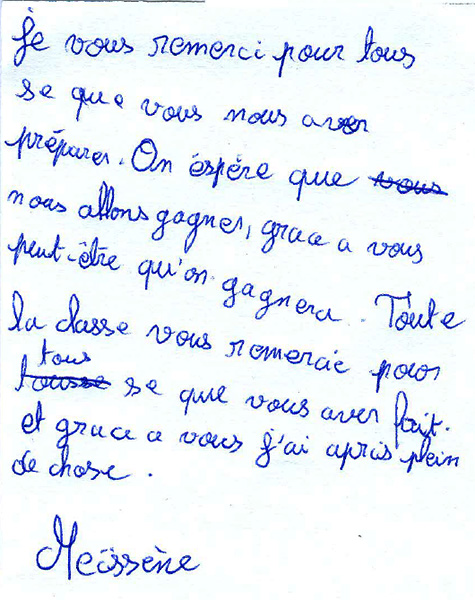 Je vous remerci pour tous
se que vous nous aver
préparer. On éspère que vous
nous allons gagner, grace a vous
peut-être qu'on gagnera. Toute
la classe vous remercie pour
tous
tousse se que vous aver fait.
et grace a vous j'ai apris plein
de chose.
Meïssène